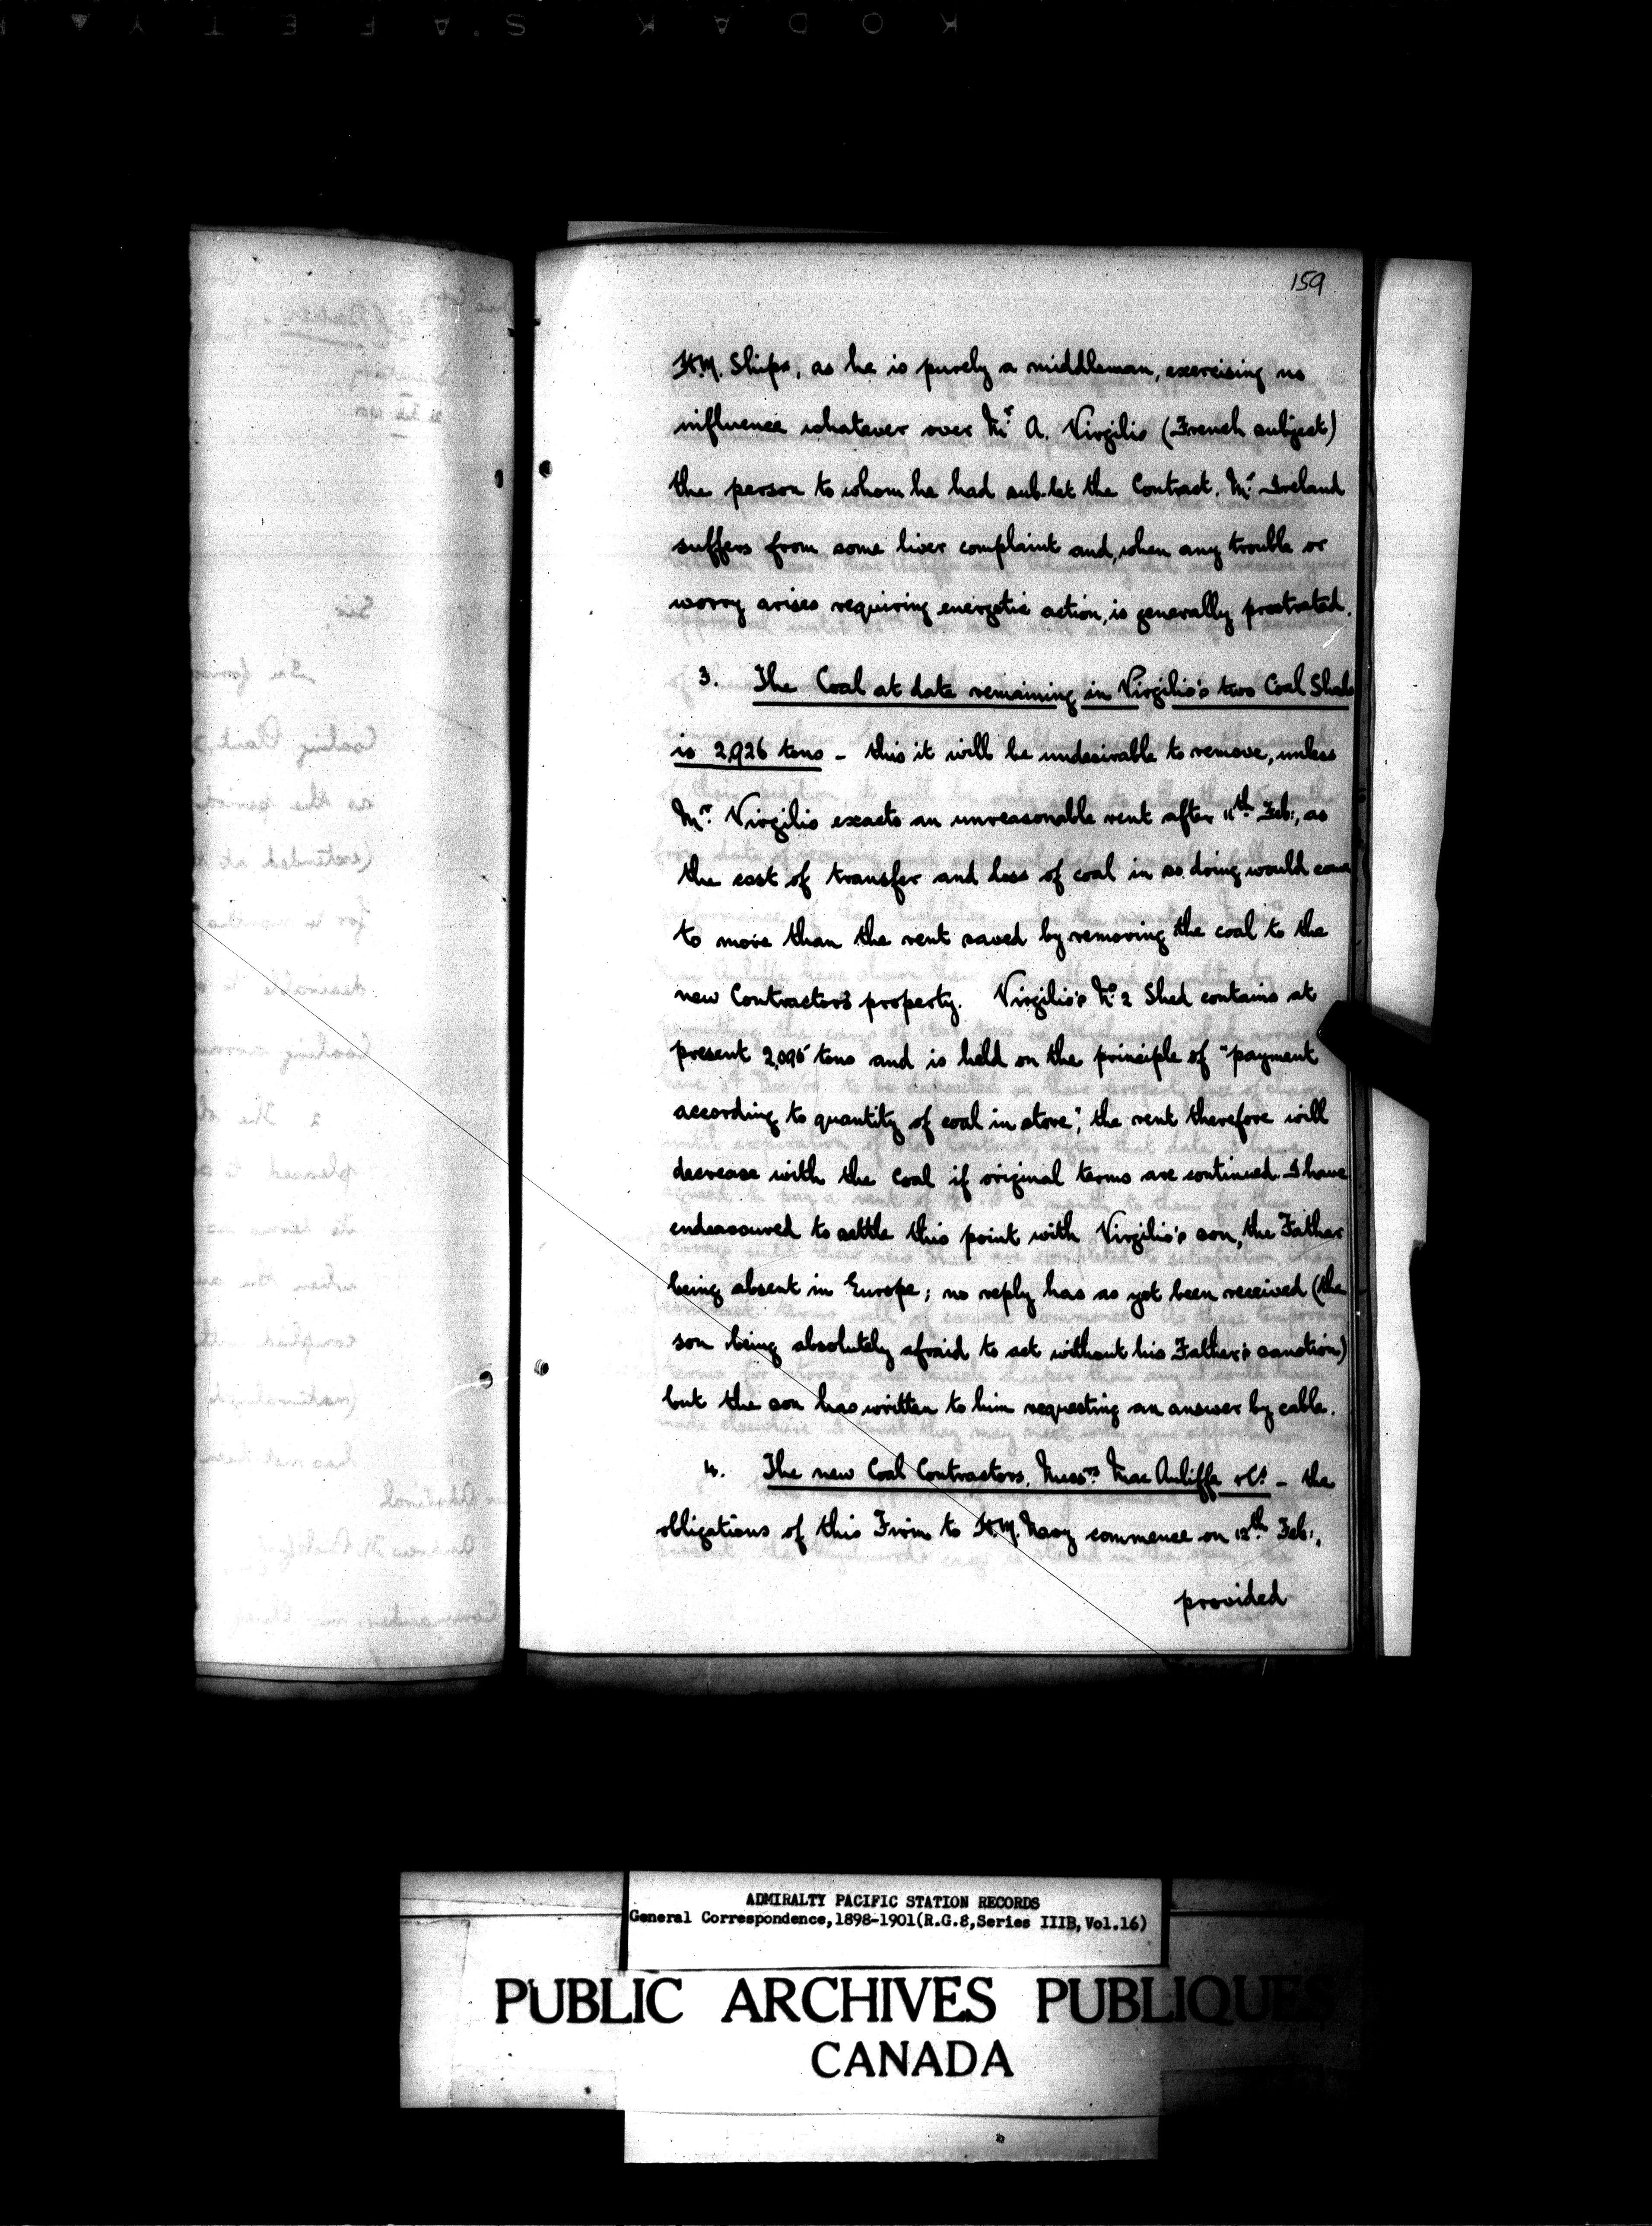 159
H.M. Ships, as he is purely a middleman, exercising no
influence whatever over Mr A. Virgilio (French subject)
the person to whom he had sub-let the Contract. Mr Ireland
suffers from some liver complaint and, when any trouble or
worry arises requiring energetic action, is generally prostrated.
3. The Coal at date remaining in Virgilio's two Coal Sheds
is 2,926 tons - this it will be undesirable to remove, unless
Mr. Virgilio exacts an unreasonable rent after 11th Feb:, as
the cost of transfer and loss of coal in so doing would come
to more than the rent saved by removing the coal to the
new Contractors property. Virgilio's No 2 Shed contains at
present tons and is held on the principle of "payment
according to quantity of coal in store", the rent therefore will
decrease with the Coal if original terms are continued. I have
endeavoured to settle this point with Virgilio's son, the Father
being absent in Europe; no reply has as yet been received (the
son being absolutely afraid to act without his Father's sanction)
but the son has written to him requesting an answer by cable.
4. The new Coal Contractors, Messrs. Mac Auliffe & Co. - the
obligations of this Firm to H.M. Navy commence on 12th Feb:,
provided
ADMIRALTY PACIFIC STATION RECORDS
General Correspondence, 1898-1901 (R.G.8, Series IIIB, Vol.16)
PUBLIC ARCHIVES PUBLIQUES
CANADA